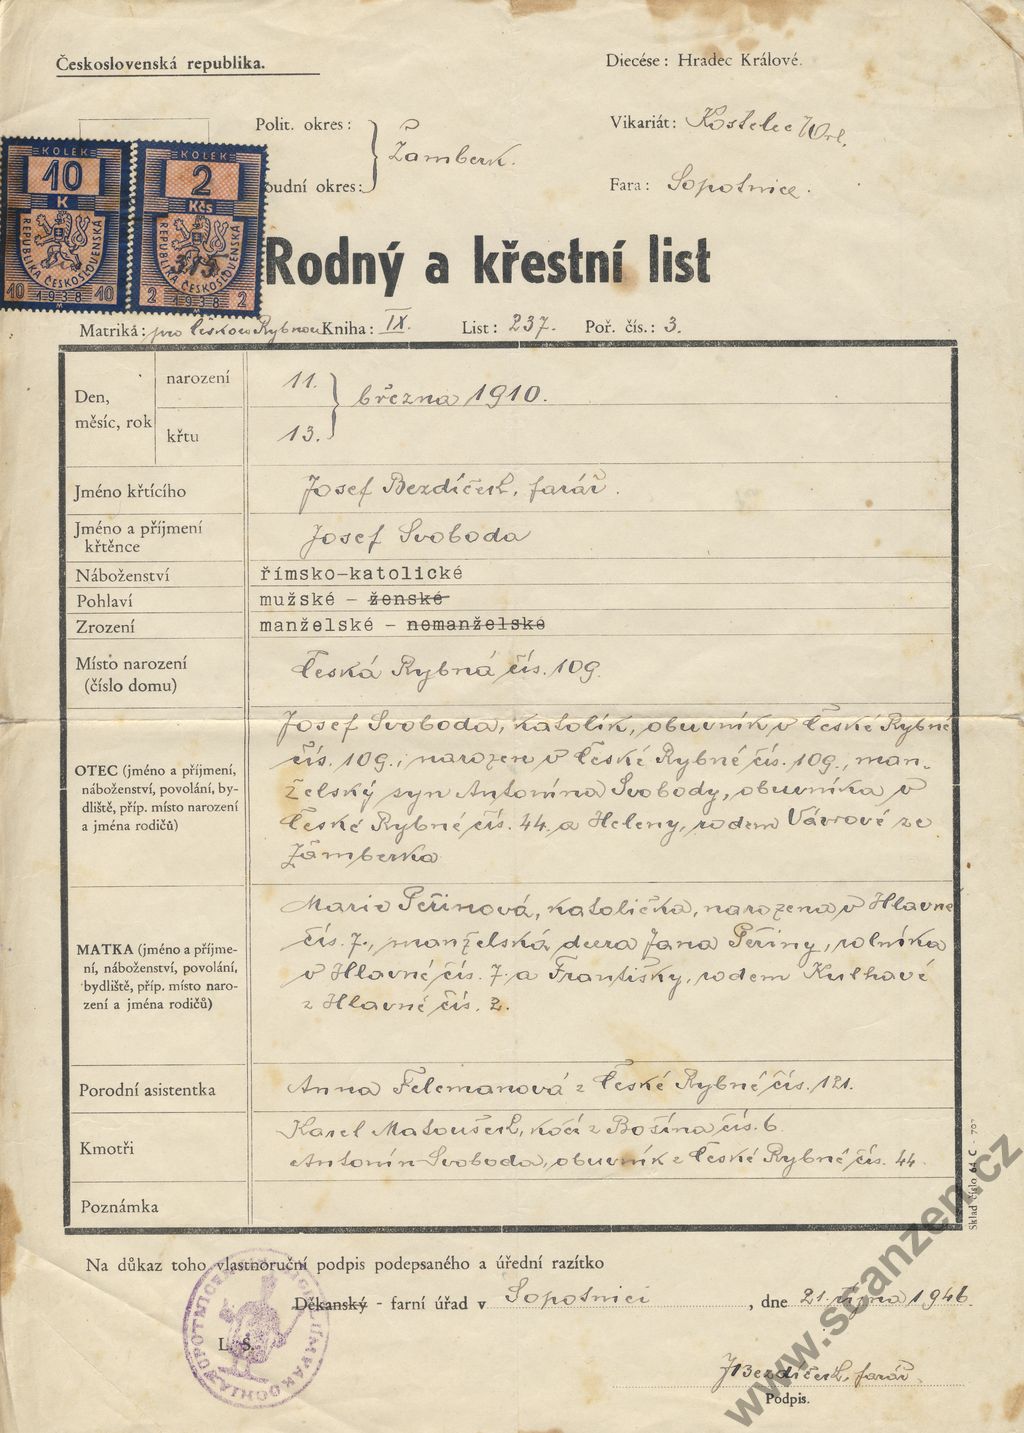 Československá republika.
Diecése: Hradec Králové.
Polit. okres:
Vikariát: Kostelec /Orl.
Žamberk.
soudní okres:
Fara: Sopotnice.
KOLEK
10
K
REPUBLIKA ČESKOSLOVENSKÁ
10 1938 10
KOLEK
2
Kčs
REPUBLIKA ČESKOSLOVENSKÁ
375
2 1938 2
Rodný a křestní list
Matrika: pro Českou Rybnou Kniha: IX. List: 237. Poř. čís.: 3.
Den,
měsíc, rok
narození
11.
března 1910.
křtu
13.
Jméno křtícího
Josef Bezdíček, farář.
Jméno a příjmení
křtěnce
Josef Svoboda
Náboženství
římsko-katolické
Pohlaví
mužské - ženské
Zrození
manželské - nemanželské
Místo narození
(číslo domu)
Česká Rybná čís. 109.
OTEC (jméno a příjmení,
náboženství, povolání, by-
dliště, příp. místo narození
a jména rodičů)
Josef Svoboda, katolík, obuvník v České Rybné
čís. 109., narozen v České Rybné čís. 109., man-
želský syn Antonína Svobody, obuvníka v
České Rybné čís. 44. a Heleny, rodem Vávrové ze
Žamberka
MATKA (jméno a příjme-
ní, náboženství, povolání,
bydliště, příp. místo naro-
zení a jména rodičů)
Marie Peřinová, katolička, narozena v Hlavné
čís. 7., manželská dcera Jana Peřiny, rolníka
v Hlavné čís. 7. a Františky, rodem Kulhavé
z Hlavné čís. 2.
Porodní asistentka
Anna Felcmanová z České Rybné čís. 121.
Kmotři
Karel Matoušek, kočí z Bošína čís. 6
Antonín Svoboda, obuvník z České Rybné čís. 44.
Poznámka
Sklad číslo 64 C - 70°
Na důkaz toho vlastnoruční podpis podepsaného a úřední razítko
Děkanský - farní úřad v Sopotnici, dne 21. října 1946.
L. S.
J Bezdíček, farář.
Podpis.
www.scanzen.cz